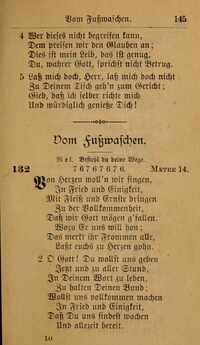 Vom Fußwaschen. 145
4 Wer dieses nicht begreifen kann,
Dem preisen wir den Glauben an;
Dies ist mein Leib, das ist genug,
Du, wahrer Gott, sprichst nicht Betrug.
5 Laß mich doch, Herr, laß mich doch nicht
Zu Deinem Tisch geh'n zum Gericht;
Gieb, daß ich selber richte mich
Und würdiglich genieße Dich!
Vom Fußwaschen.
Mel. Befiehl du deine Wege.
132 7 6 7 6 7 6 7 6. MATTH 14.
Von Herzen woll'n wir singen,
In Fried und Einigkeit,
Mit Fleiß und Ernste dringen
Zu der Vollkommenheit,
Daß wir Gott mögen g'fallen.
Wozu Er uns will hon;
Das merkt ihr Frommen alle,
Laßt euchs zu Herzen gohn.
2 O Gott! Du wollst uns geben
Jetzt und zu aller Stund,
In Deinem Wort zu leben,
Zu halten Deinen Bund;
Wollst uns vollkommen machen
In Fried und Einigkeit,
Daß Du uns findest wachen
Und allezeit bereit.
10